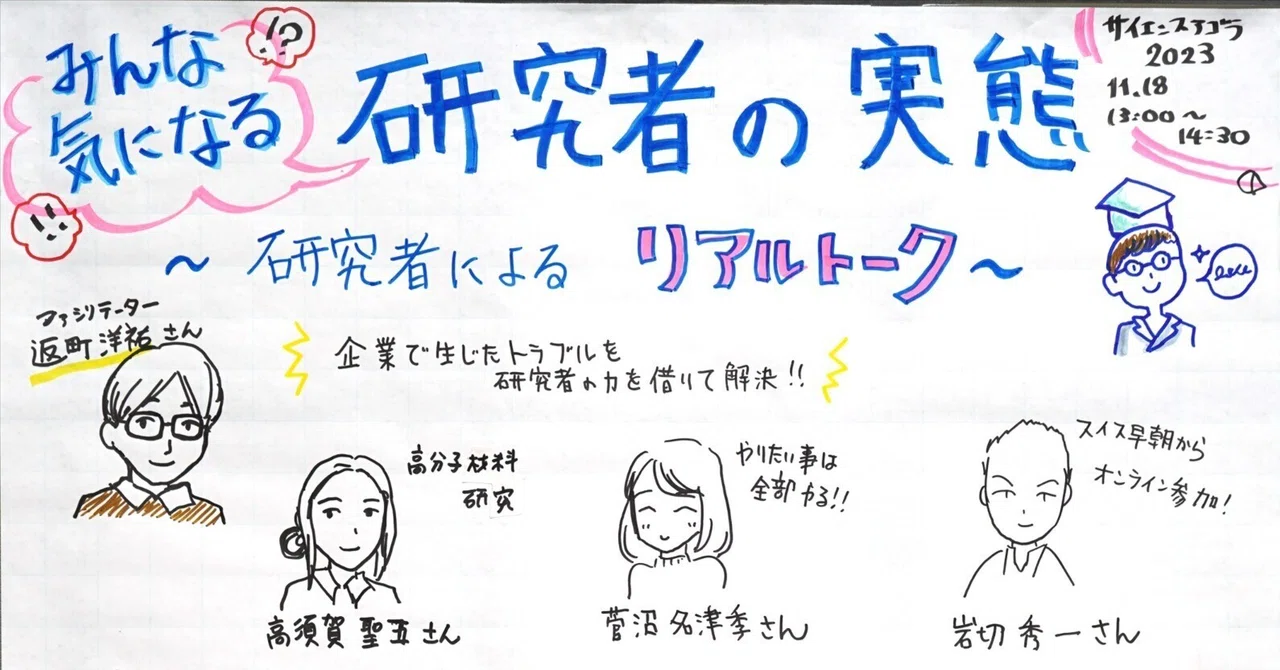 みんな
気になる
!?
研究者の実態
サイエンスアゴラ
2023
11.18
13:00～
14:30
～研究者によるリアルトーク～
ファシリテーター
返町洋祐さん
企業で生じたトラブルを
研究者の力を借りて解決!!
高分子材料
研究
高須賀聖五さん
やりたい事は
全部やる!!
菅沼名津季さん
スイス早朝から
オンライン参加!
岩切秀一さん